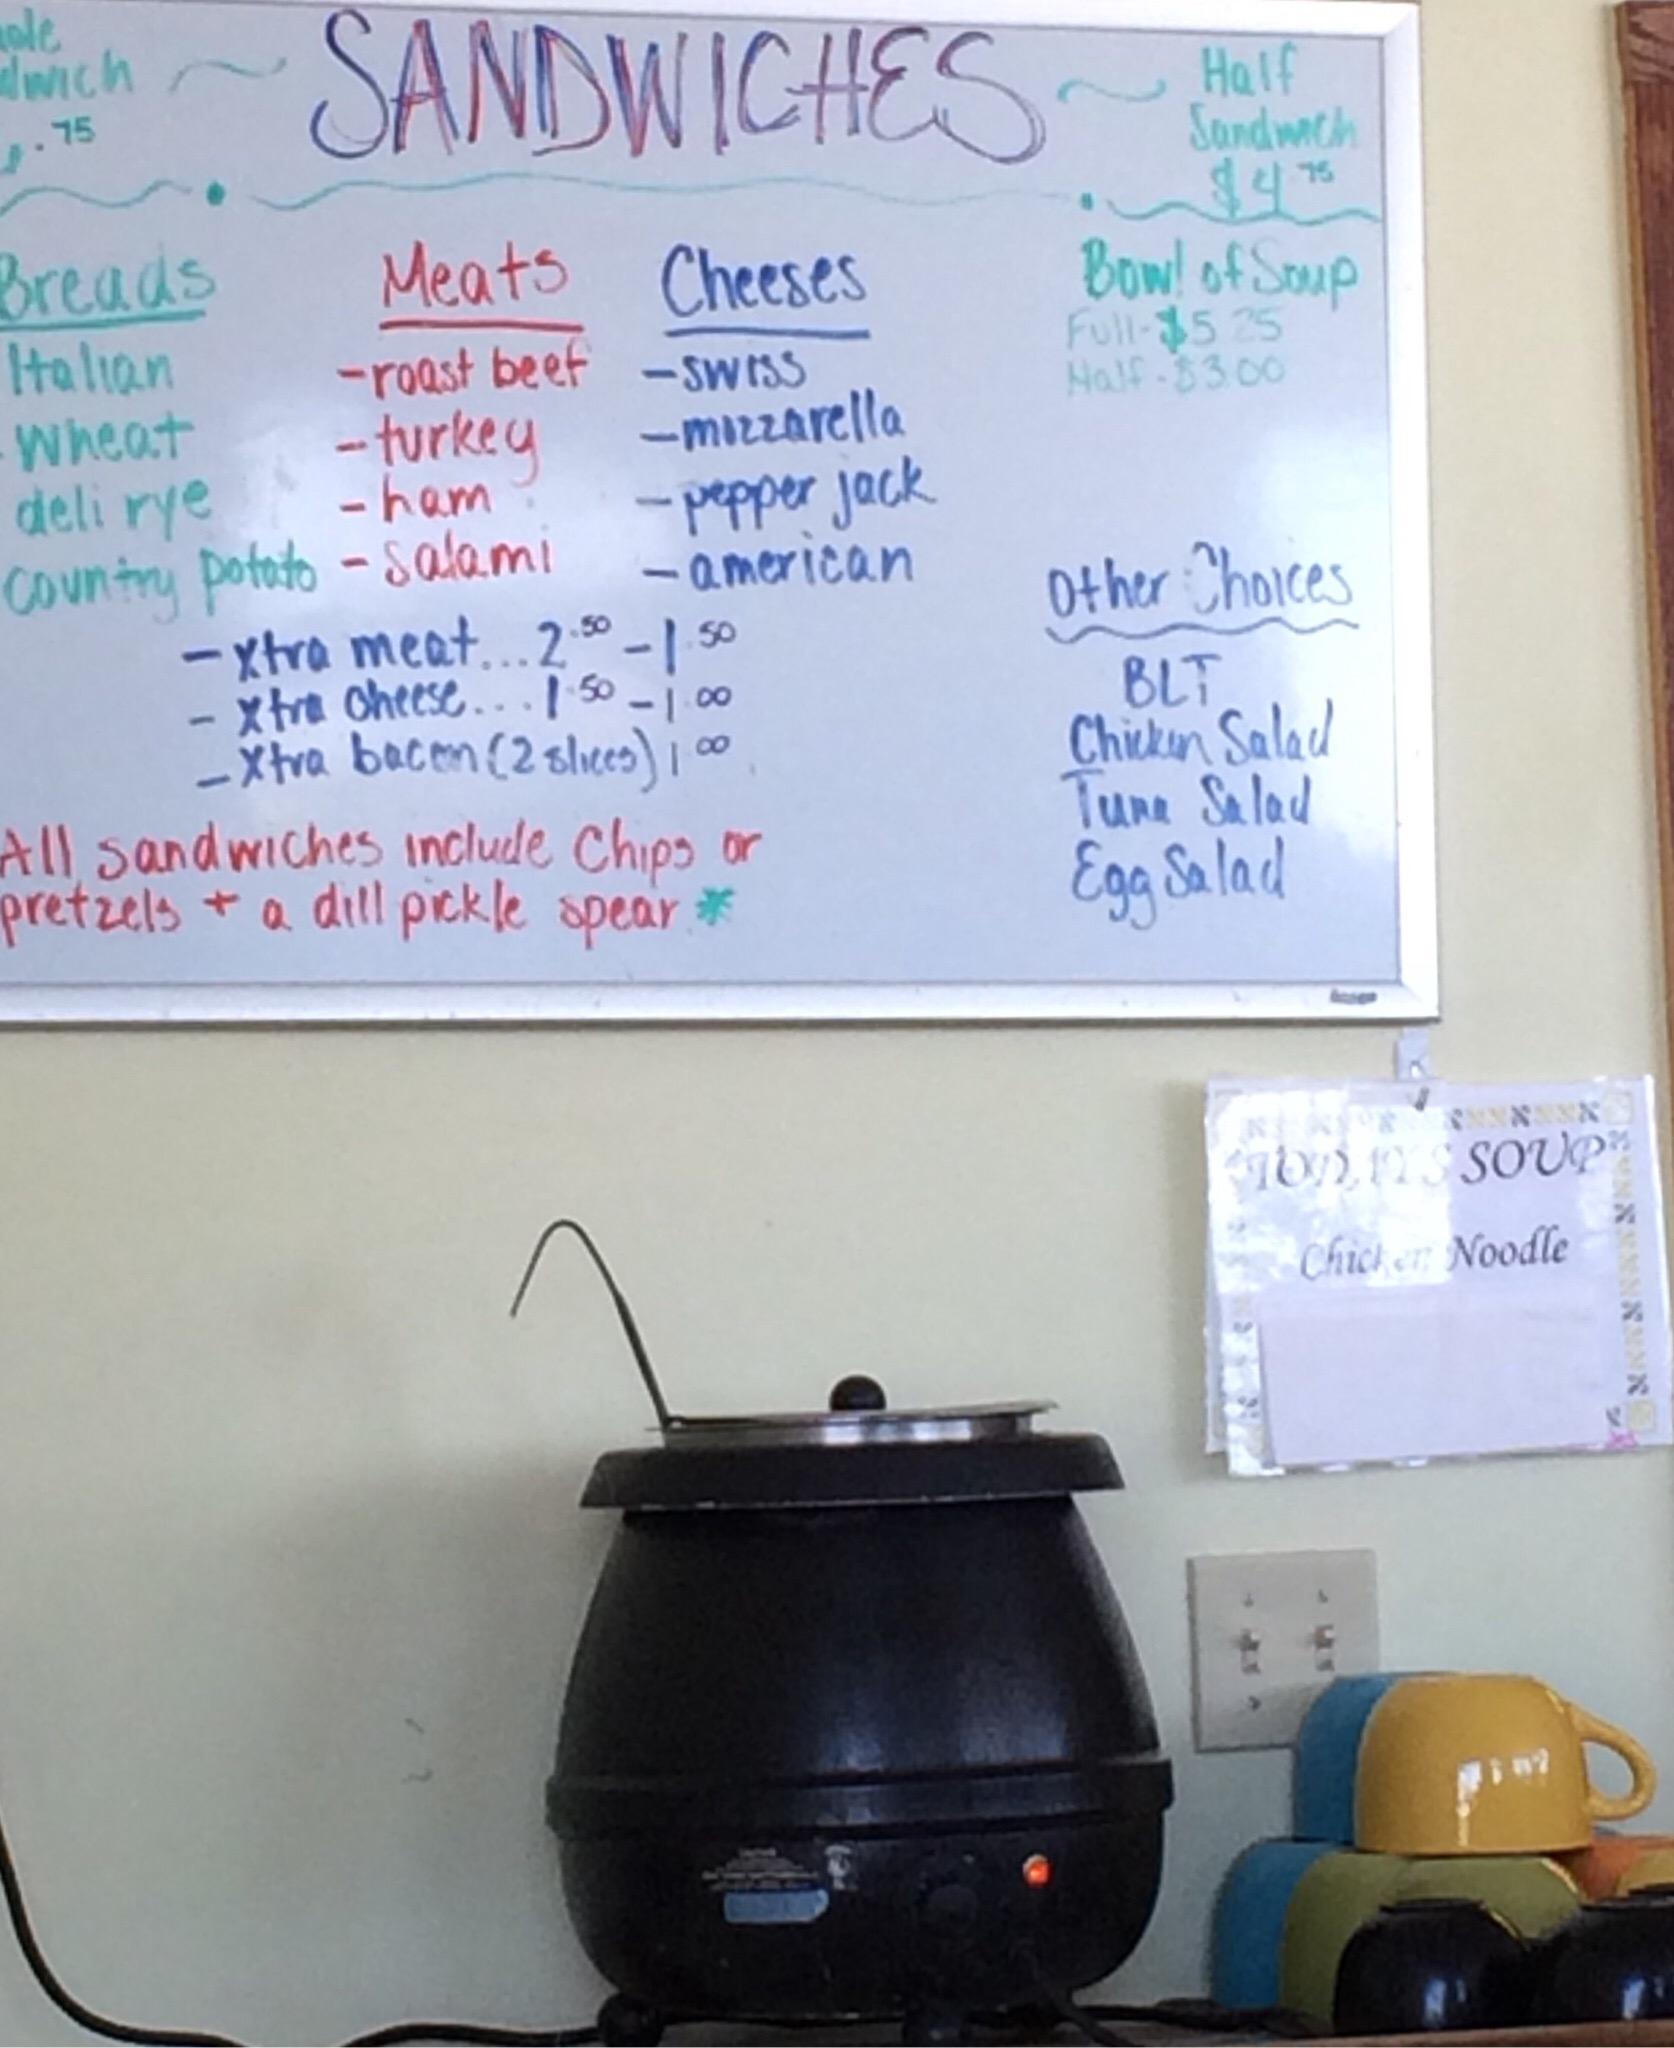 SANDWICHES
.75
Half
Sandwich
$4 75
Breads
Italian
wheat
deli rye
country potato
Meats
-roast beef
-turkey
-ham
-salami
Cheeses
-swiss
-mozzarella
-pepper jack
-american
Bowl of Soup
Full-$5.25
Half-$3.00
-xtra meat...2.50-1.50
-xtra cheese...1.50-1.00
-xtra bacon (2 slices) 1.00
All sandwiches include Chips or
pretzels + a dill pickle spear *
Other Choices
BLT
Chicken Salad
Tuna Salad
Egg Salad
TODAY'S SOUP
Chicken Noodle